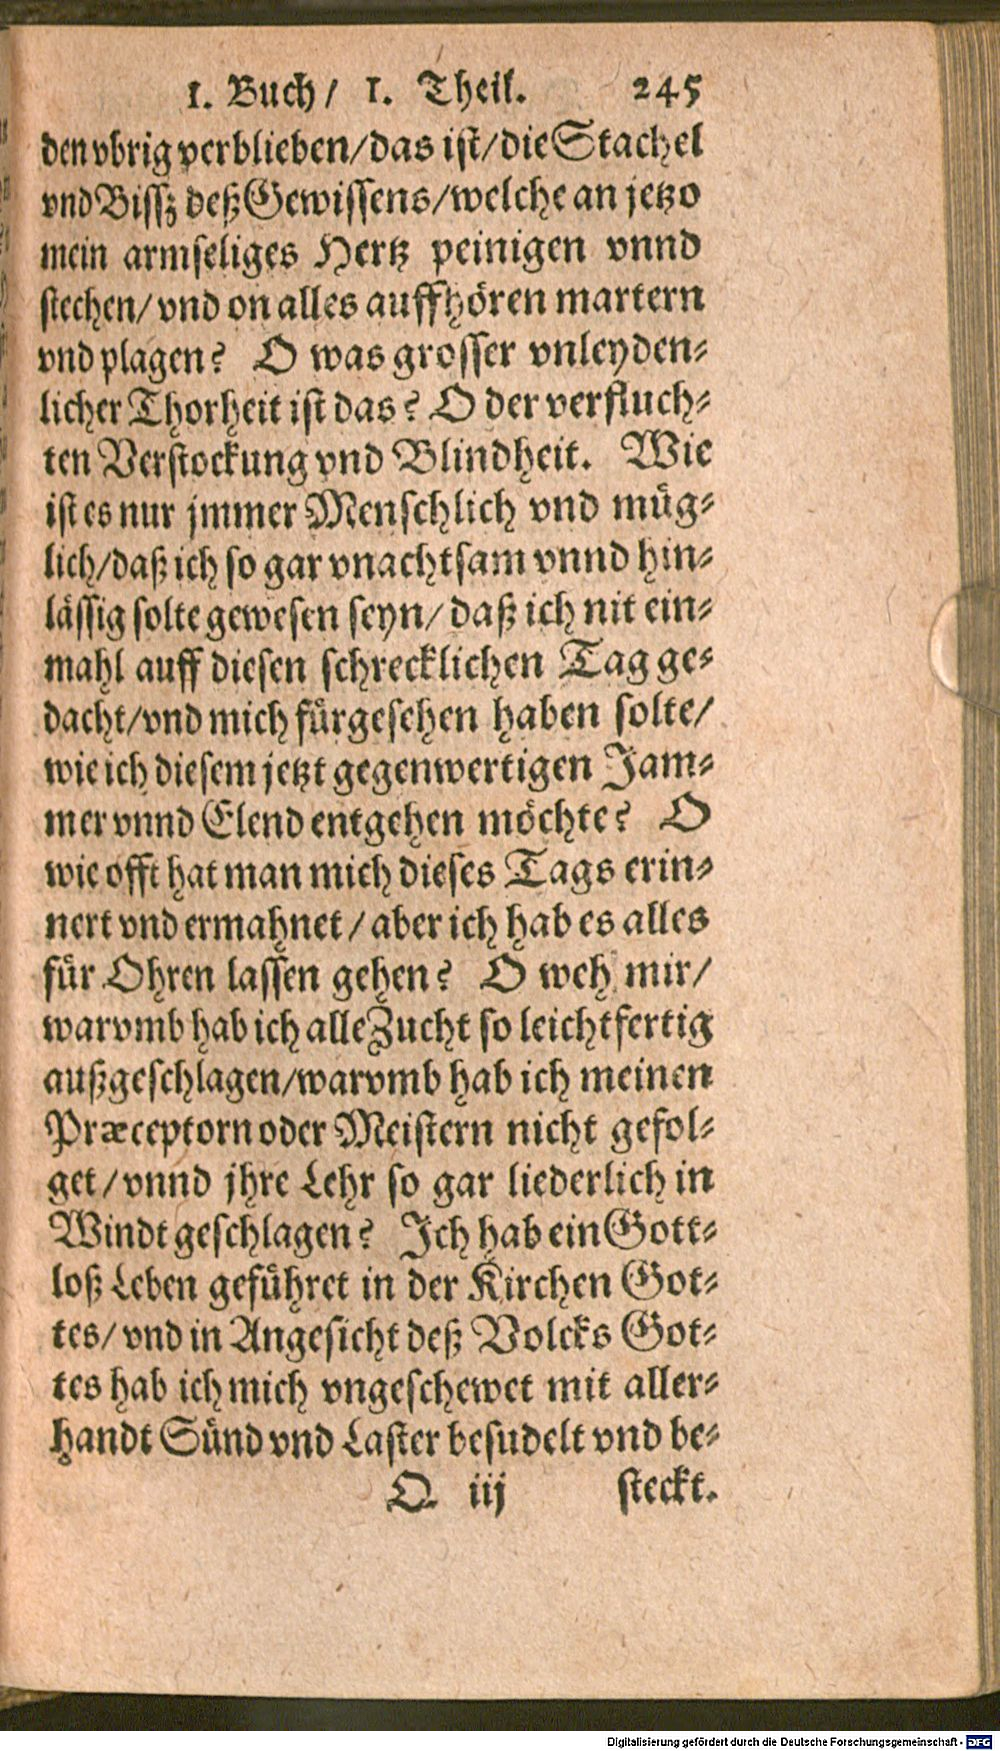 1. Buch/ 1. Theil. 245
den vbrig verblieben/das ist/die Stachel
vnd Bissz deß Gewissens/welche an jetzo
mein armseliges Hertz peinigen vnnd
stechen/ vnd on alles auffhören martern
vnd plagen? O was grosser vnleyden-
licher Thorheit ist das? O der verfluch-
ten Verstockung vnd Blindheit. Wie
ist es nur jmmer Menschlich vnd müg-
lich/daß ich so gar vnachtsam vnnd hin-
lässig solte gewesen seyn/ daß ich nit ein-
mahl auff diesen schrecklichen Tag ge-
dacht/vnd mich fürgesehen haben solte/
wie ich diesem jetzt gegenwertigen Jam-
mer vnnd Elend entgehen möchte? O
wie offt hat man mich dieses Tags erin-
nert vnd ermahnet / aber ich hab es alles
für Ohren lassen gehen? O weh mir/
warvmb hab ich alle Zucht so leichtfertig
außgeschlagen/warvmb hab ich meinen
Præceptorn oder Meistern nicht gefol-
get/vnnd jhre Lehr so gar liederlich in
Windt geschlagen? Ich hab ein Gott-
loß Leben geführet in der Kirchen Got-
tes/ vnd in Angesicht deß Volcks Got-
tes hab ich mich vngeschewet mit aller-
handt Sünd vnd Laster besudelt vnd be-
Q iij steckt.
Digitalisierung gefördert durch die Deutsche Forschungsgemeinschaft - DFG